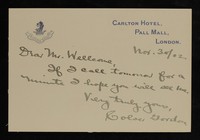 CARLTON HOTEL.
PALL MALL,
LONDON.
Nov. 30/02
Dear Mr. Wellcome,
If I call tomorrow for a
minute I hope you will see me.
Very truly yours,
Gordon